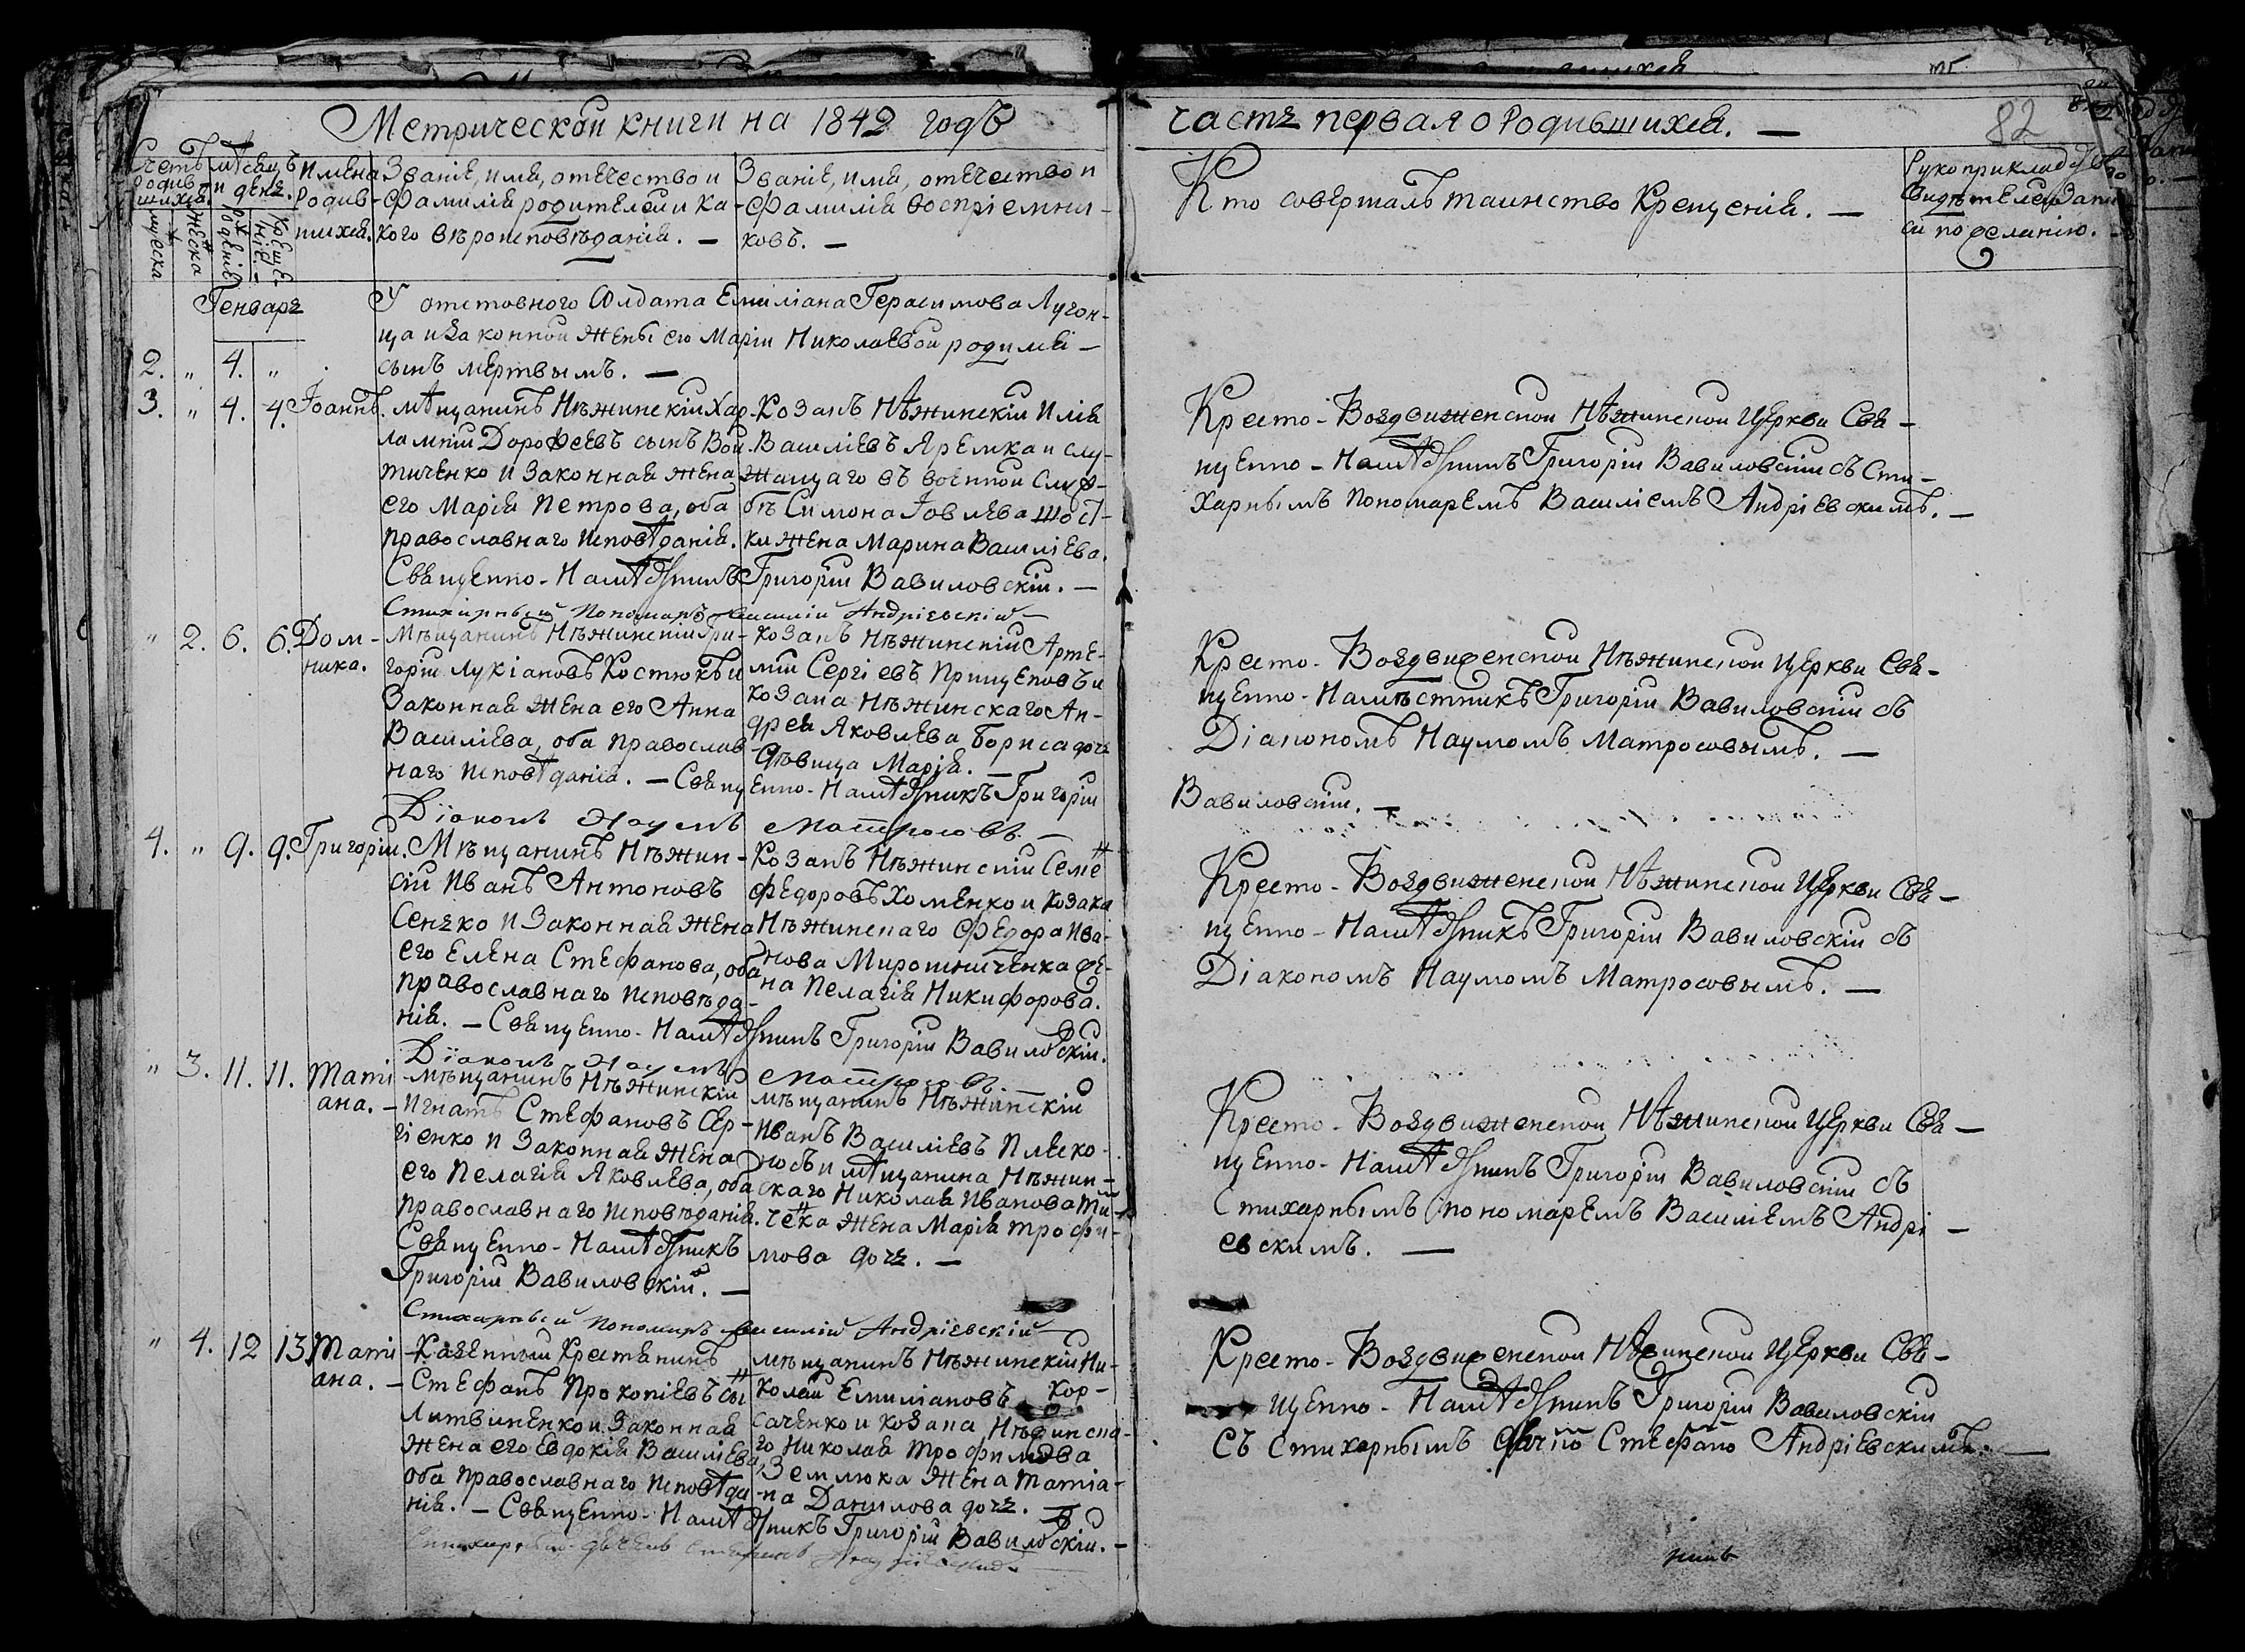 Метрической книги на 1842 годъ
часть первая о Родившихся. —
82
Счетъ родив-шихся.
мѣсяцъ и день.
Имена Родив-шихся.
Званіе, имя, отечество и
фамилія родителей и ка-
кого вѣроисповѣданія. —
Званіе, имя, отечество и
фамилія воспріемни-
ковъ. —
Кто совершалъ таинство Крещенія. —
Рукоприкладство
свидѣтелей запи
си по желанію.
мужеска
женска
рожденіе
крещеніе. —
Генварь
У отставного Солдата Емиліана Герасимова Лугон-
ца и законной жены его Маріи Николаевой родился —
2. „ 4. „ сынъ мертвымъ. —
3. „ 4. 4. Іоаннъ.
мѣщанинъ Нѣжинскій Хар-
лампій Дорофеевъ сынъ Вой-
тиченко и законная жена
его Марія Петрова, оба
православнаго исповѣданія.
Козакъ Нѣжинскій Илія
Василіевъ Яремка и слу-
жащаго въ военной служ-
бѣ Симона Іовлева Шост-
ки жена Марина Василіева.
Священно-Намѣстникъ Григорій Вавиловскій. —
Стихарный Пономарь Василій Андріевскій —
Кресто-Воздвиженской Нѣжинской Церкви Свя-
щенно-Намѣстникъ Григорій Вавиловскій съ Сти-
харнымъ Пономаремъ Василіемъ Андріевскимъ. —
„ 2. 6. 6. Дом-
ника.
Мѣщанинъ Нѣжинскій Гри-
горій Лукіановъ Костюкъ и
Законная жена его Анна
Василіева, оба православ
наго исповѣданія. — Священно-Намѣстникъ Григорій
Козакъ Нѣжинскій Арте-
мій Сергіевъ Прищеповъ и
козака Нѣжинскаго Ан-
дрея Яковлева Бориса дочь
дѣвица Марія. —
Вавиловскій. —
Діаконъ Наумъ Матросовъ. —
Кресто-Воздвиженской Нѣжинской Церкви Свя-
щенно-Намѣстникъ Григорій Вавиловскій съ
Діакономъ Наумомъ Матросовымъ. —
4. „ 9. 9. Григорій.
Мѣщанинъ Нѣжин-
скій Иванъ Антоновъ
Сенько и Законная жена
его Елена Стефанова, оба
православнаго исповѣда-
нія. — Священно-Намѣстникъ Григорій Вавиловскій.
Козакъ Нѣжинскій Семенъ
Федоровъ Хоменко и козака
Нѣжинскаго Федора Ива-
нова Мирошниченка же-
на Пелагія Никифорова.
Діаконъ Наумъ Матросовъ
Кресто-Воздвиженской Нѣжинской Церкви Свя-
щенно-Намѣстникъ Григорій Вавиловскій съ
Діакономъ Наумомъ Матросовымъ. —
„ 3. 11. 11. Тати
ана. —
мѣщанинъ Нѣжинскій
Игнатъ Стефановъ Сер-
гіенко и Законная жена
его Пелагія Яковлева, оба
православнаго исповѣданія.
Священно-Намѣстникъ
Григорій Вавиловскій. —
мѣщанинъ Нѣжинскій
Иванъ Василіевъ Плеско-
носъ и мѣщанина Нѣжин-
скаго Николая Иванова
жена Марія Трофи-
мова дочь. —
Стихарный Пономарь Василій Андріевскій
Кресто-Воздвиженской Нѣжинской Церкви Свя-
щенно-Намѣстникъ Григорій Вавиловскій съ
Стихарнымъ пономаремъ Василіемъ Андрі-
евскимъ. —
„ 4. 12 13 Тати
ана. —
Казенный Крестянинъ
Стефанъ Прокопіевъ сынъ
Литвиненко и Законная
жена его Евдокія Василіева,
оба православнаго исповѣда-
нія. — Священно-Намѣстникъ Григорій Вавиловскій. —
мѣщанинъ Нѣжинскій Ни-
колай Емиліановъ Кор-
саченко и козака Нѣжинска-
го Николая Трофимова
Землюка жена Татіа-
на Данилова дочь. —
Кресто-Воздвиженской Нѣжинской Церкви Свя-
щенно-Намѣстникъ Григорій Вавиловскій
съ Стихарнымъ Стефано Андріевскимъ. —